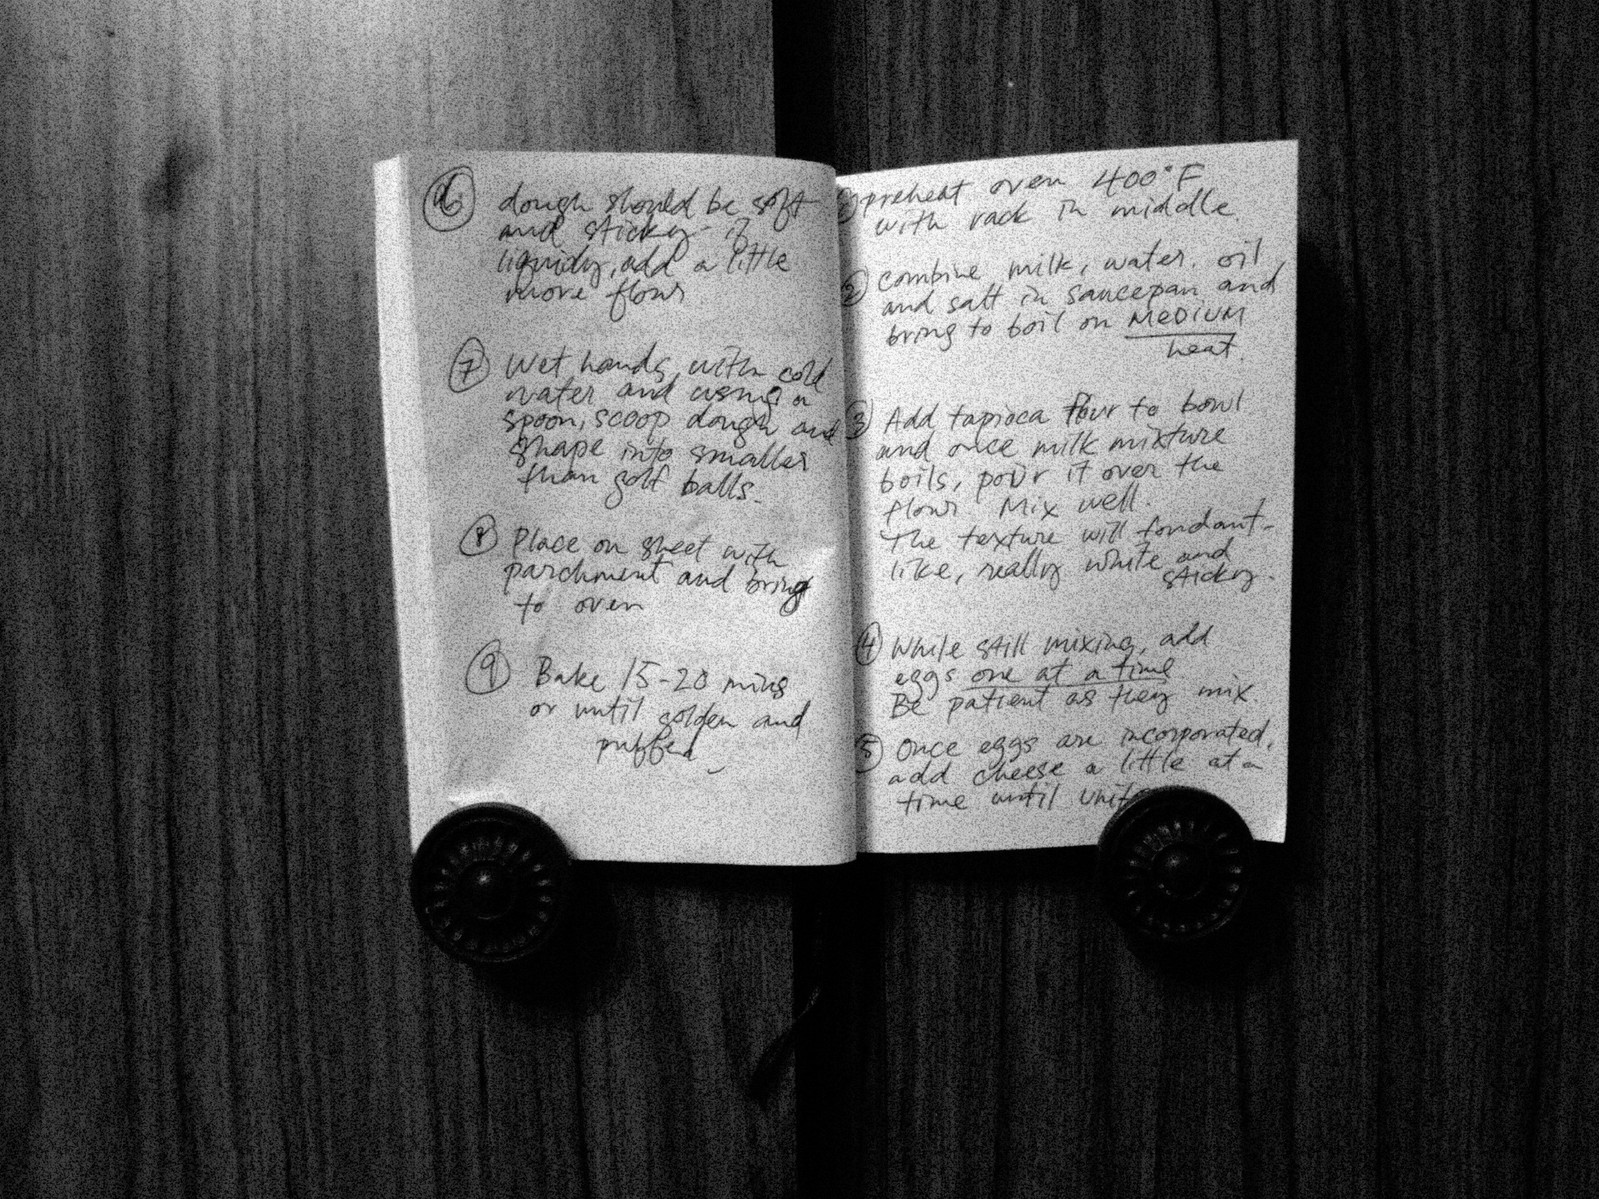 ⑥ dough should be soft
and sticky - if
liquidy, add a little
more flour
⑦ Wet hands with cold
water and using a
spoon, scoop dough and
shape into smaller
than golf balls.
⑧ Place on sheet with
parchment and bring
to oven
⑨ Bake 15-20 mins
or until golden and
puffed
preheat oven 400°F
with rack in middle.
② combine milk, water, oil,
and salt in saucepan and
bring to boil on MEDIUM
heat.
③ Add tapioca flour to bowl
and once milk mixture
boils, pour it over the
flour. Mix well.
The texture will fondant-
like, really white and
sticky.
④ While still mixing, add
eggs one at a time
Be patient as they mix.
⑤ Once eggs are incorporated,
add cheese a little at a
time until